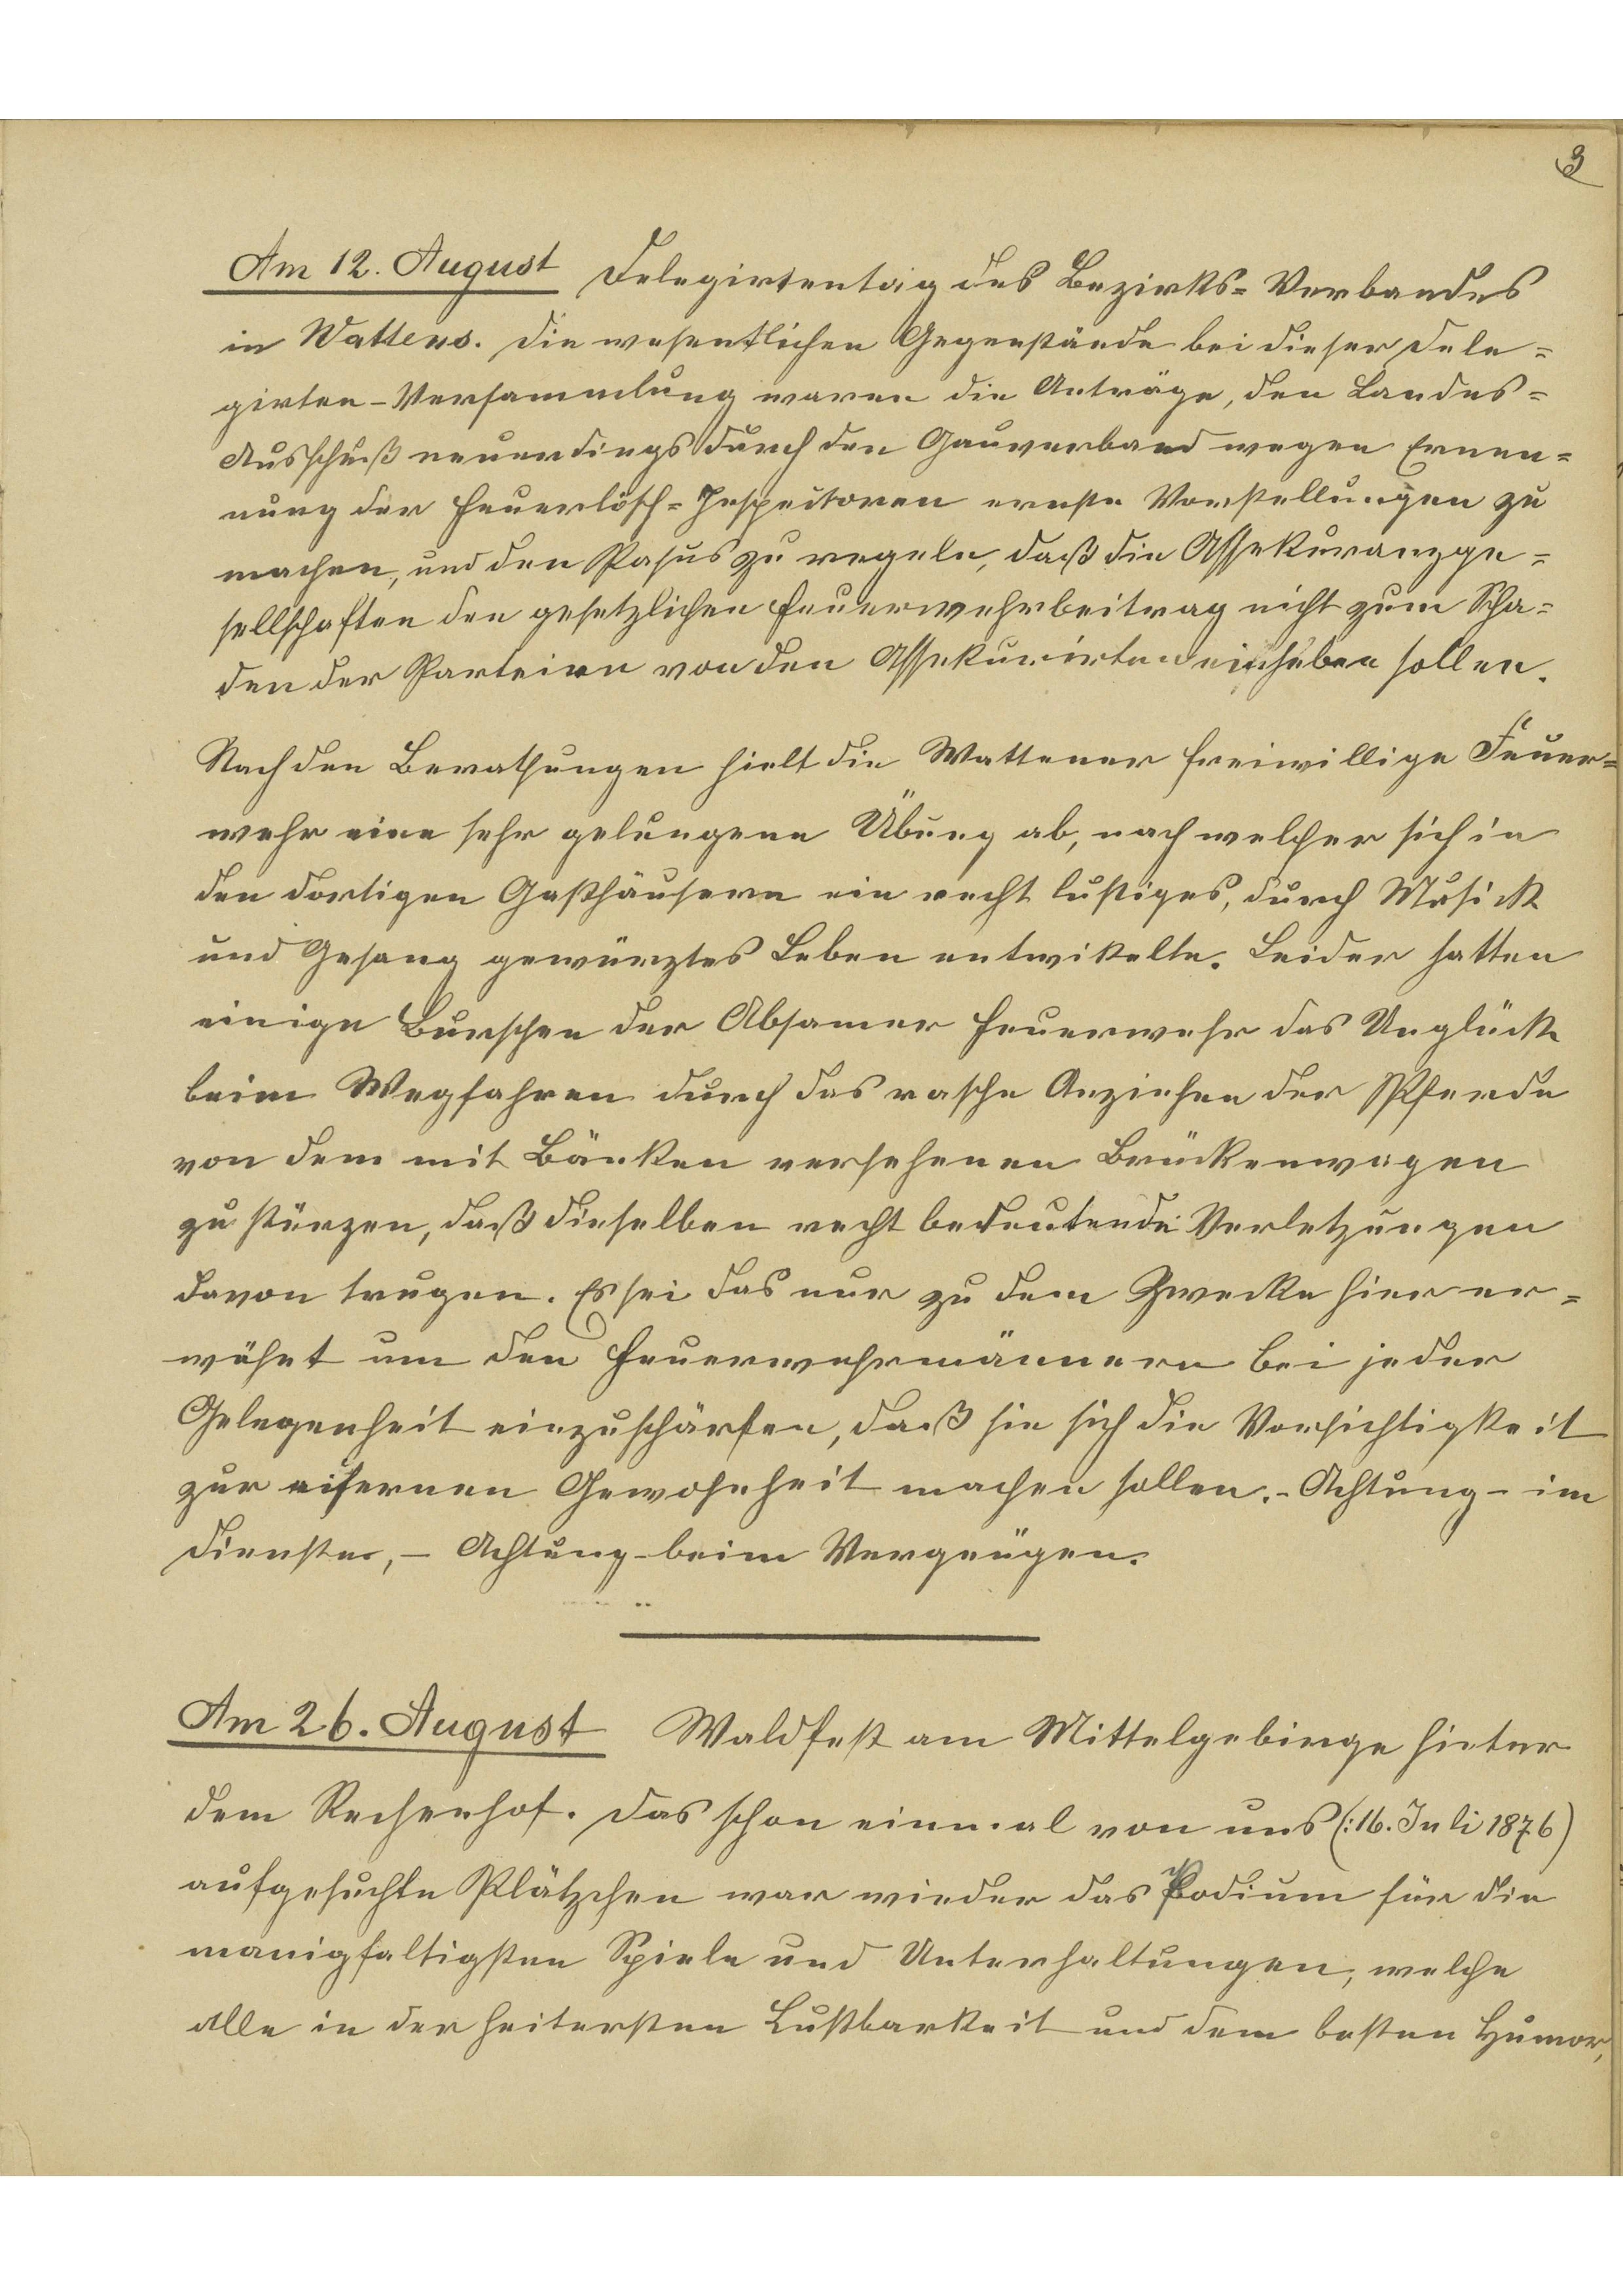 3
Am 12. August Delegirtentag des Bezirks= Verbandes
in Wattens. Die wesentlichen Gegenstände bei dieser Dele=
girten-Versammlung waren die Anträge, den Landes=
Ausschuß neuerdings durch den Gauverband wegen Ernen=
nung der Feuerlösch=Inspectoren ernste Vorstellungen zu
machen, und den Pasus zu regeln, daß die Assekuranzge=
sellschaften den gesetzlichen Feuerwehrbeitrag nicht zum Scha=
den der Parteien von den Assekurirten einheben sollen.
Nach den Berathungen hielt die Wattener freiwillige Feuer=
wehr eine sehr gelungene Übung ab, nach welcher sich in
den dortigen Gasthäusern ein recht lustiges, durch Musick
und Gesang gewürztes Leben entwikelte. Leider hatten
einige Burschen der Absamer Feuerwehr das Unglück
beim Wegfahren durch das rasche Anziehen der Pferde
von dem mit Bänken versehenen Brückenwagen
zu stürzen, daß dieselben recht bedeutende Verletzungen
davon trugen. Es sei das nur zu dem Zwecke hier er=
wähnt um den Feuerwehrmännern bei jeder
Gelegenheit einzuschärfen, daß sie sich die Vorsichtigkeit
zur eisernen Gewohnheit machen sollen. - Achtung - im
Dienste, - Achtung - beim Vergnügen.
Am 26. August Waldfest am Mittelgebirge hinter
dem Rechenhof. Das schon einmal von uns (:16. Juli 1876)
aufgesuchte Plätzchen war wieder das Podium für die
manigfaltigsten Spiele und Unterhaltungen, welche
alle in der heitersten Lustbarkeit und dem besten Humor,